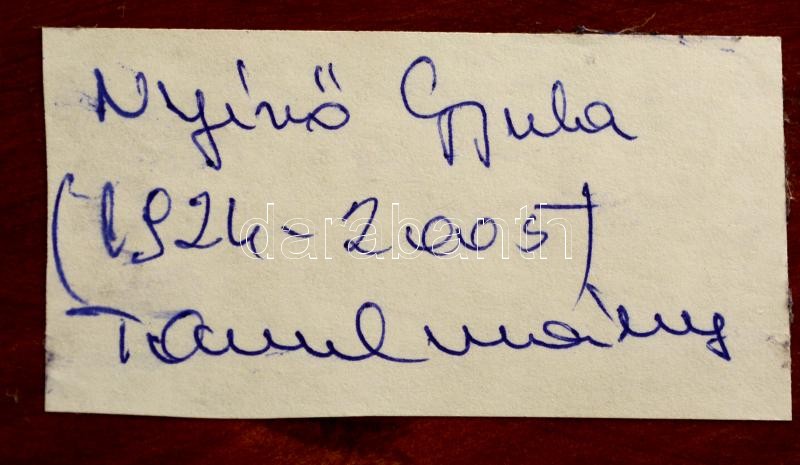 Nyírő Gyula
(1924-2005)
Tanulmány
darabanth